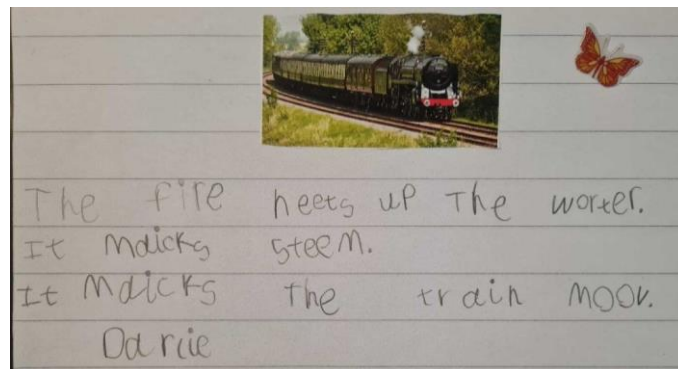 The fire heets up The worter.
It maicks steem.
It maicks The train moov.
Darcie